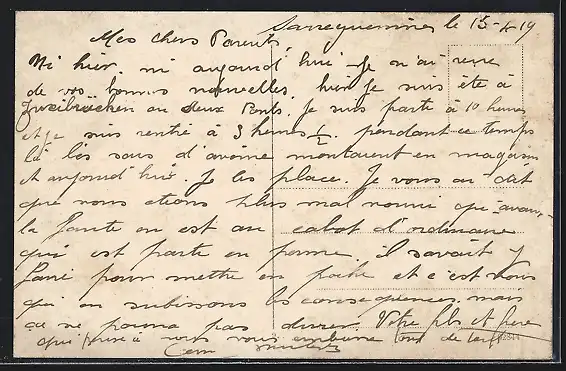 Sarreguemines le 15-4-19
Mes chers Parents,
Ni hier, ni aujourd'hui Je n'ai
de vos bonnes nouvelles, hier Je suis été à
Zweibrücken ou deux Ponts. Je suis parti à 10 heures
et Je suis rentré à 3 heures ½. pendant ce temps
là les sacs d'avoine montaient en magasin
et aujourd'hui. Je les place. Je vous ai dit
que nous étions plus mal nourri qu'avant
la faute en est au cabot d'ordinaire
qui est partie en perme. il savait y
faire pour mettre en poche et c'est nous
qui en subissons les conséquences. mais
ça ne pourra pas durer. Votre fils et frère
qui pense à vous vous embrasse tous de